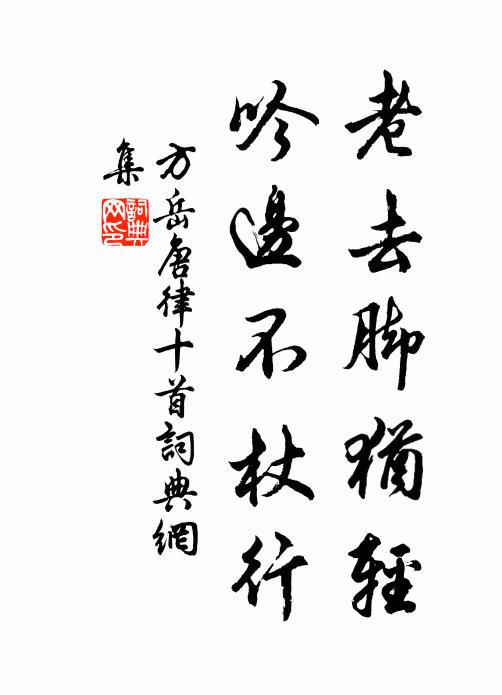 老去脚猶輕
吟邊不杖行
方岳唐律十首詞典網
集
詞典
网印